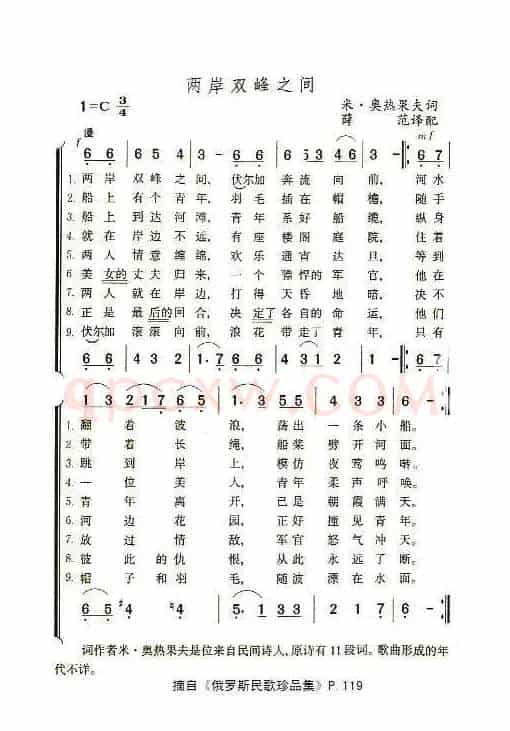 两岸双峰之间
1=C 3/4
米·奥热果夫词
薛 范译配
慢
f
mf
6 6 | 6 5 4 | 3 - 6 6 | 6 5 4 | 3 4 6 | 3 - :6 7
1. 两岸 双峰之间, 伏尔加 奔流向前, 河水
2. 船上 有个青年, 羽毛 插在帽檐, 随手
3. 船上 到达河滩, 青年 系好船缆, 纵身
4. 就在 岸边不远, 有座 楼阁庭院, 住着
5. 两人 情意绵绵, 欢乐 通宵达旦, 等到
6. 美女的 丈夫归来, 一个 骠悍的军官, 他在
7. 两人 就在岸边, 打得 天昏地暗, 决不
8. 正是 最后的回合, 决定了 各自的命运, 他们
9. 伏尔加 滚滚向前, 浪花 带走了青年, 只有
6 6 | 6 6 3 | 2 1·7 | 6 6 6 | 4 3 1 2 | 1 - :6 7
1 3 2176 5 1·3 55 1 3 1
1. 翻着波浪, 荡出一条小船。
2. 带着长绳, 船桨劈开河面。
3. 跳到岸上, 模仿夜莺鸣啭。
4. 一位美人, 青年柔声呼唤。
5. 青年离开, 已是朝霞满天。
6. 河边花园, 正好撞见青年。
7. 放过情敌, 军官怒气冲天。
8. 彼此的仇恨, 从此永远了断。
9. 帽子和羽毛, 随波漂在水面。
6 5 #4 #4 5·1 33 4 2 1
词作者米·奥热果夫是位来自民间诗人,原诗有11段词。歌曲形成的年
代不详。
摘自《俄罗斯民歌珍品集》P.119